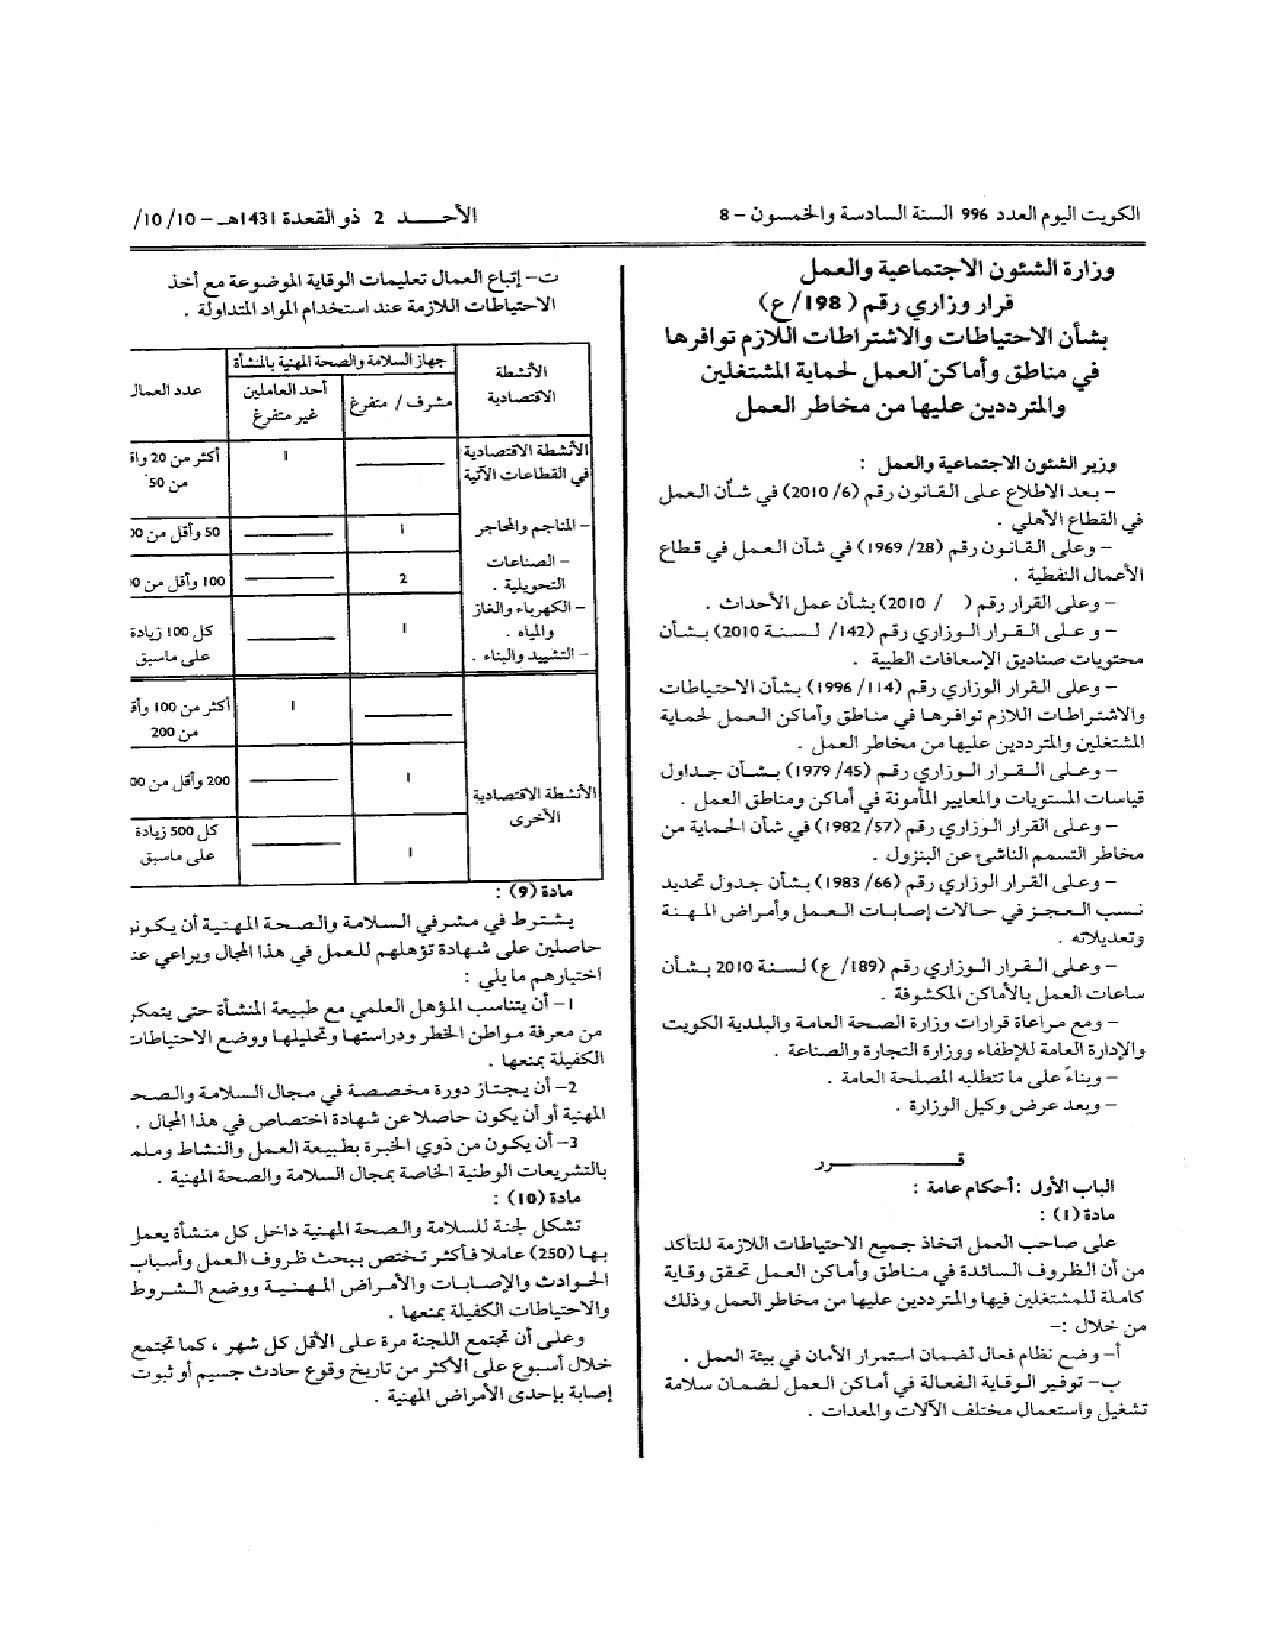 الكويت اليوم العدد 996 السنة السادسة والخمسون – 8
الأحـــــد 2 ذو القعدة 1431هـ – 10/10/
وزارة الشئون الاجتماعية والعمل
قرار وزاري رقم ( 198/ع)
بشأن الاحتياطات والاشتراطات اللازم توافرها
في مناطق وأماكن العمل لحماية المشتغلين
والمترددين عليها من مخاطر العمل
وزير الشئون الاجتماعية والعمل :
– بعد الاطلاع على القانون رقم (2010/6) في شأن العمل
في القطاع الأهلي .
– وعلى القانون رقم (28/ 1969) في شأن العمل في قطاع
الأعمال النفطية .
– وعلى القرار رقم ( / 2010) بشأن عمل الأحداث .
– وعلى القرار الوزاري رقم (142/ لسنة 2010) بشأن
محتويات صناديق الإسعافات الطبية .
– وعلى القرار الوزاري رقم (114/ 1996) بشأن الاحتياطات
والاشتراطات اللازم توافرها في مناطق وأماكن العمل لحماية
المشتغلين والمترددين عليها من مخاطر العمل .
– وعلى القرار الوزاري رقم (45/ 1979) بشأن جداول
قياسات المستويات والمعايير المأمونة في أماكن ومناطق العمل .
– وعلى القرار الوزاري رقم (57/ 1982) في شأن الحماية من
مخاطر التسمم الناشئ عن البنزول .
– وعلى القرار الوزاري رقم (66/ 1983) بشأن جدول تحديد
نسب العجز في حالات إصابات العمل وأمراض المهنة
وتعديلاته .
– وعلى القرار الوزاري رقم (189/ ع) لسنة 2010 بشأن
ساعات العمل بالأماكن المكشوفة .
– ومع مراعاة قرارات وزارة الصحة العامة والبلدية الكويت
والإدارة العامة للإطفاء ووزارة التجارة والصناعة .
– وبناءً على ما تتطلبه المصلحة العامة .
– وبعد عرض وكيل الوزارة .
قـــــــــرر
الباب الأول :أحكام عامة :
مادة (1) :
على صاحب العمل اتخاذ جميع الاحتياطات اللازمة للتأكد
من أن الظروف السائدة في مناطق وأماكن العمل تحقق وقاية
كاملة للمشتغلين فيها والمترددين عليها من مخاطر العمل وذلك
من خلال :–
أ– وضع نظام فعال لضمان استمرار الأمان في بيئة العمل .
ب– توفير الوقاية الفعالة في أماكن العمل لضمان سلامة
تشغيل واستعمال مختلف الآلات والمعدات .
ت– إتباع العمال تعليمات الوقاية الموضوعة مع أخذ
الاحتياطات اللازمة عند استخدام المواد المتداولة .
الأنشطة الاقتصادية
جهاز السلامة والصحة المهنية بالمنشأة
مشرف / متفرغ
أحد العاملين غير متفرغ
عدد العمال
الأنشطة الاقتصادية
في القطاعات الآتية
1
أكثر من 20
من 50
– المناجم والمحاجر
1
50 وأقل من
– الصناعات
التحويلية .
2
100 وأقل من
– الكهرباء والغاز
والمياه .
– التشييد والبناء .
1
كل 100 زيادة
على ماسبق
1
أكثر من 100
من 200
الأنشطة الاقتصادية
الأخرى
1
200 وأقل من
1
كل 500 زيادة
على ماسبق
مادة (9) :
يشترط في مشرفي السلامة والصحة المهنية أن يكونو
حاصلين على شهادة تؤهلهم للعمل في هذا المجال ويراعي عنـ
اختيارهم ما يلي :
1– أن يتناسب المؤهل العلمي مع طبيعة المنشأة حتى يتمكن
من معرفة مواطن الخطر ودراستها وتحليلها ووضع الاحتياطات
الكفيلة بمنعها .
2– أن يجتاز دورة مخصصة في مجال السلامة والصحـ
المهنية أو أن يكون حاصلا عن شهادة اختصاص في هذا المجال .
3– أن يكون من ذوي الخبرة بطبيعة العمل والنشاط وملمـ
بالتشريعات الوطنية الخاصة بمجال السلامة والصحة المهنية .
مادة (10) :
تشكل لجنة للسلامة والصحة المهنية داخل كل منشأة يعمل
بها (250) عاملا فأكثر تختص ببحث ظروف العمل وأسباب
الحوادث والإصابات والأمراض المهنية ووضع الشروط
والاحتياطات الكفيلة بمنعها .
وعلى أن تجتمع اللجنة مرة على الأقل كل شهر ، كما تجتمع
خلال أسبوع على الأكثر من تاريخ وقوع حادث جسيم أو ثبوت
إصابة بإحدى الأمراض المهنية .